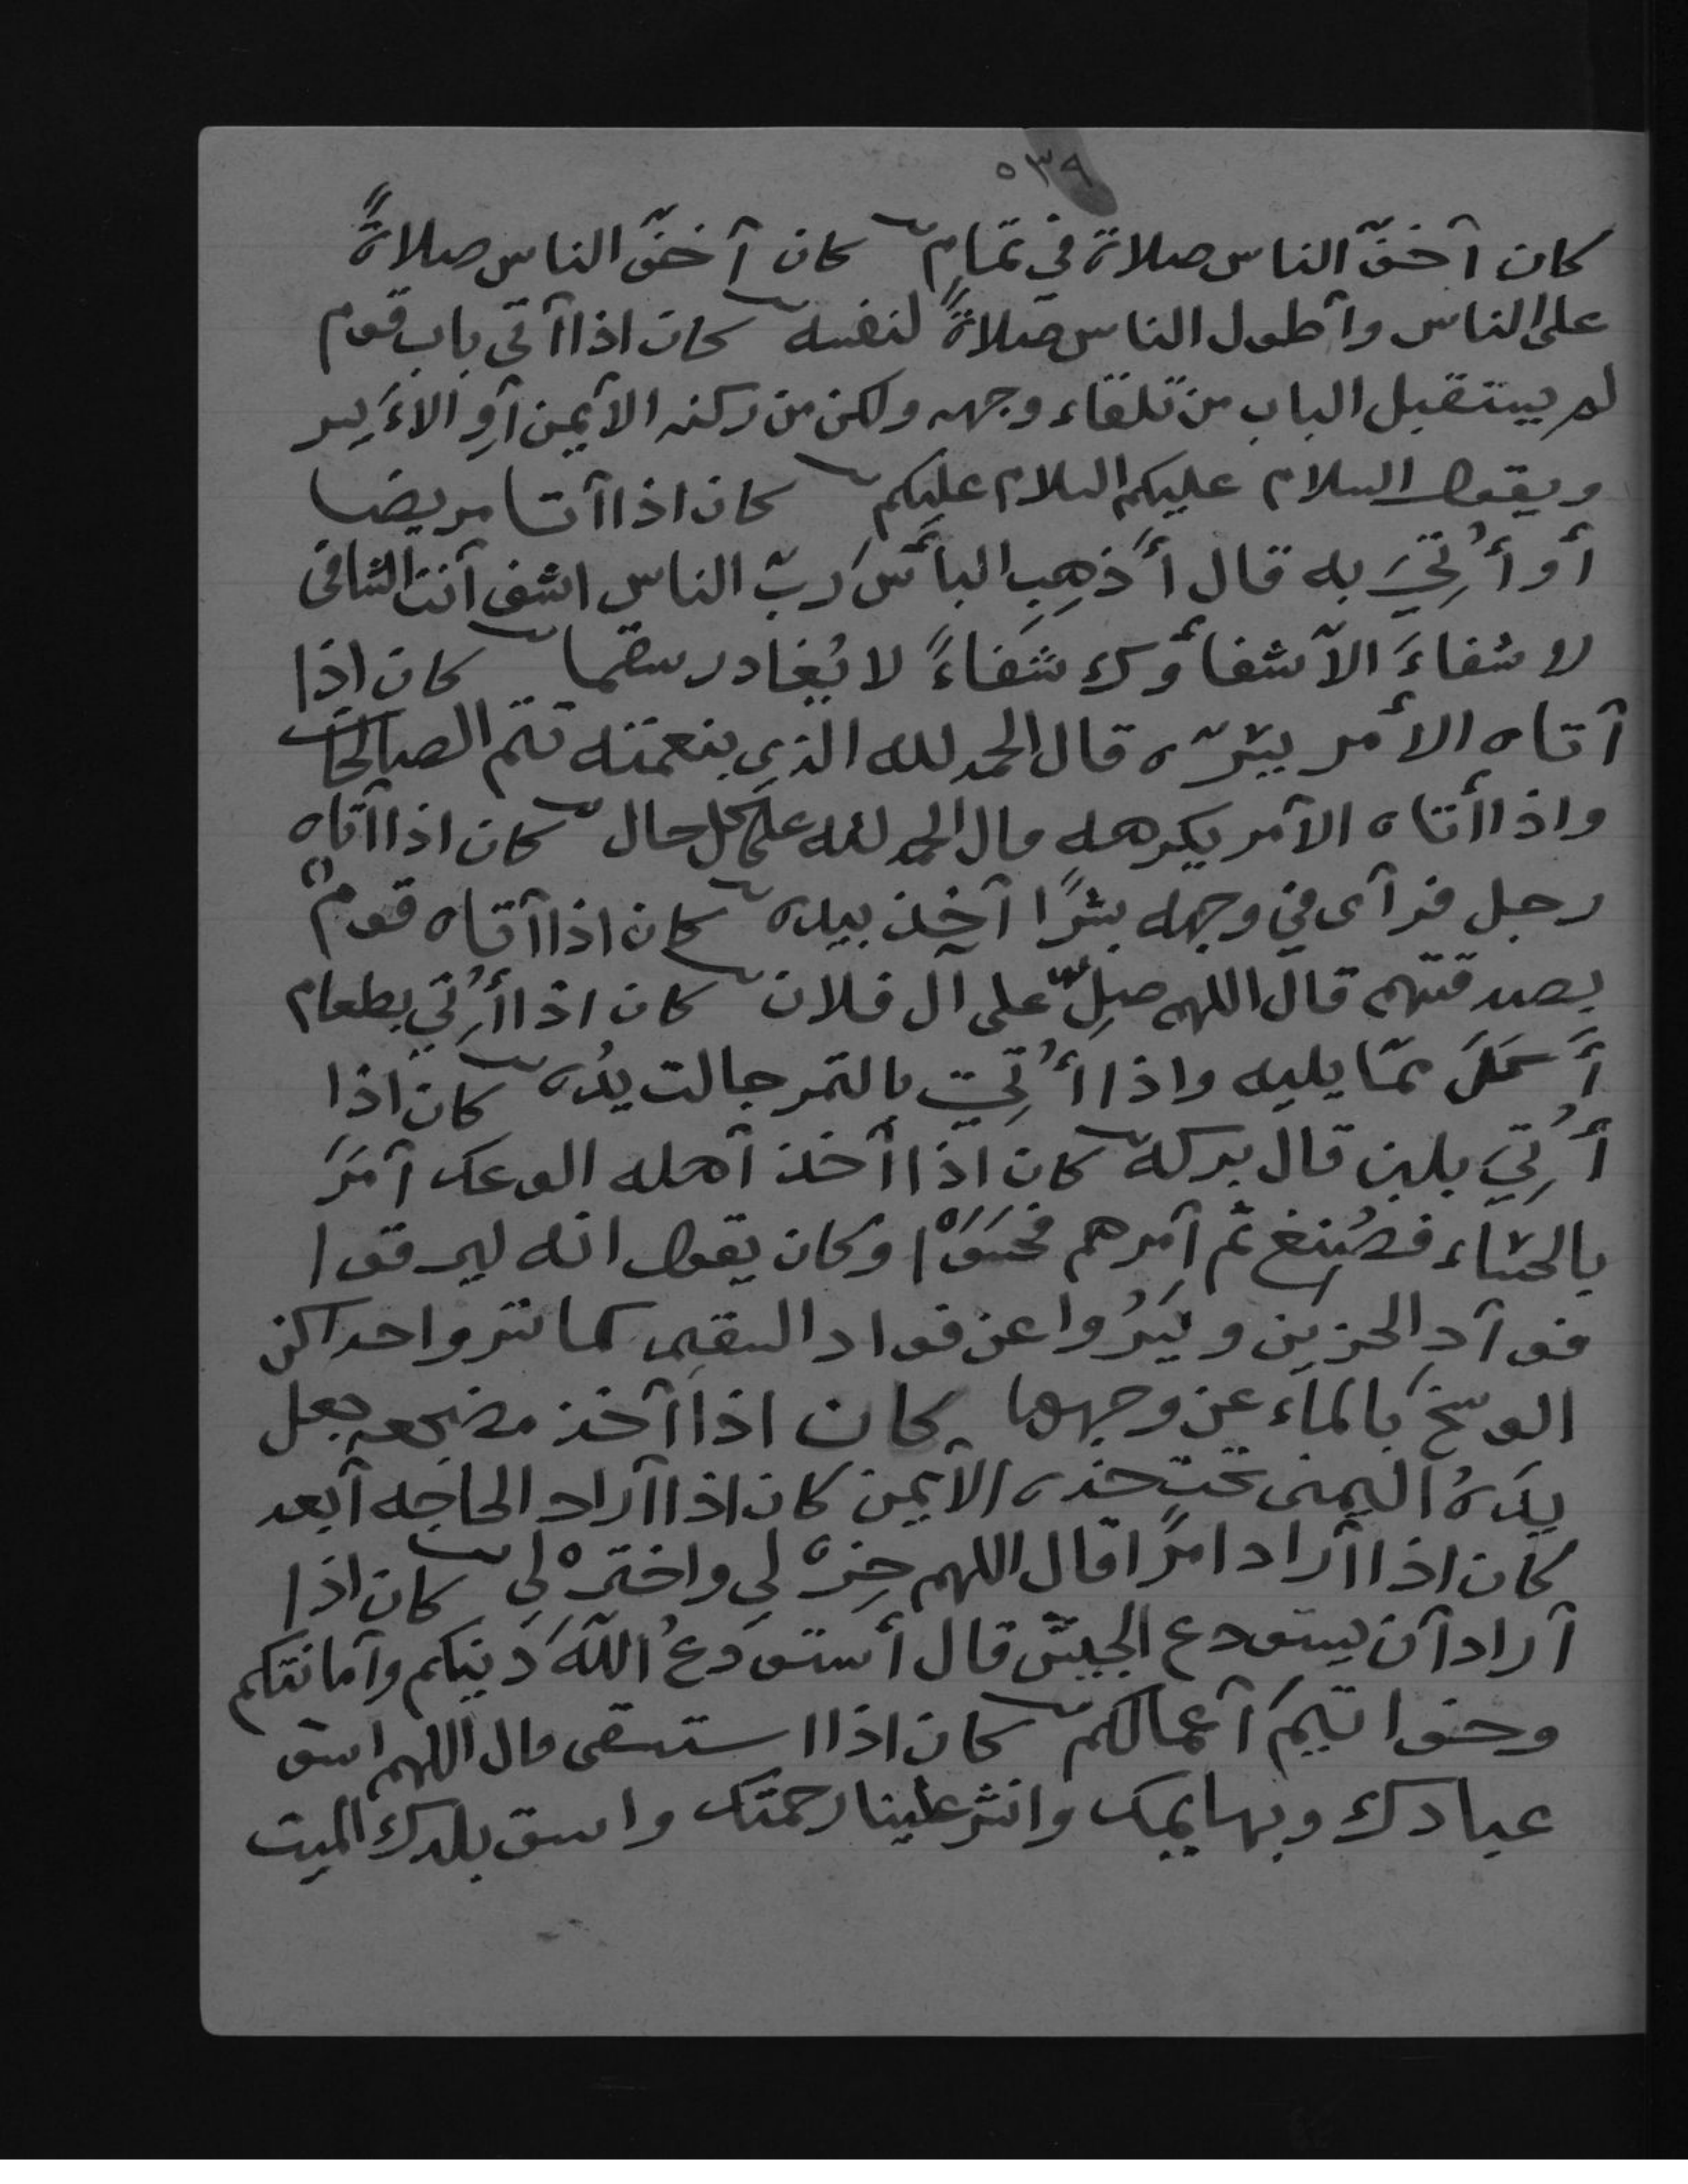 ٥٣٩
كان أخفّ الناس صلاة في تمام كان أخفّ الناس صلاةً
على الناس وأطول الناس صلاةً لنفسه كان اذا أتى باب قوم
لم يستقبل الباب من تلقاء وجهه ولكن من ركنه الأيمن أو الأيسر
ويقول السلام عليكم السلام عليكم كان اذا أتا مريضا
أو أُتِيَ به قال أَذهِبِ البأسَ ربّ الناس اشف أنت الشافى
لا شفاءَ الاّ شفاؤك شفاءً لا يُغادر سقما كان إذا
أتاه الأمر يسّرّه قال الحمد لله الذي بنعمته تتم الصالحات
واذا أتاه الأمر يكرهه قال الحمد لله على كل حال كان اذا أتاه
رجل فرأى في وجهه بشرًا أخذ بيده كان اذا أتاه قومٌ
بصدقتهم قال اللهم صلِّ على آل فلان كان اذا أُتي بطعام
أَكلَ ممّا يليه واذا أُتِيَ بالتمر جالت يدُه كان اذا
أُتِيَ بلبن قال بركة كان اذا أخذ أهله الوعك أمَرَ
بالحساء فصُنِعَ ثم أمرهم فحَسَوْا وكان يقول انه ليرقوا
فوآدِ الحزين ويَسرُوا عن فواد السقيم كما تسروا احداكن
الوسخَ بالماء عن وجهها كان اذا أخذ مضجعه جعل
يدَهُ اليمنى تحت خده الأيمن كان اذا أراد الحاجه أبعد
كان اذا أراد امرًا قال اللهم خِرْ لي واختَرْ لي كان اذا
أراد أن يستودع الجيش قال أستودعُ اللّهَ دينكم وأمانتكم
وخواتيمَ أعمالكم كان اذا استسقى قال اللهم اسق
عبادك وبهايمك وانشر علينا رحمتك واسق بلدك الميت